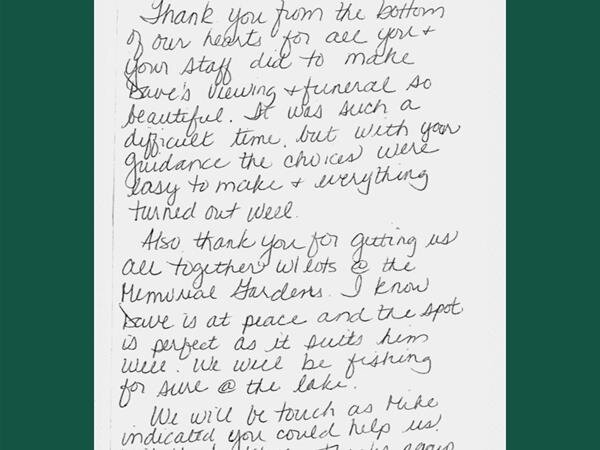 Thank you from the bottom
of our hearts for all you +
your staff did to make
Dave's viewing + funeral so
beautiful. It was such a
difficult time, but with your
guidance the choices were
easy to make + everything
turned out well.
Also thank you for getting us
all together w/ lots @ the
Memorial Gardens. I know
Dave is at peace and the spot
is perfect as it suits him
well. We will be fishing
for sure @ the lake.
We will be touch as Mike
indicated you could help us
thanks again